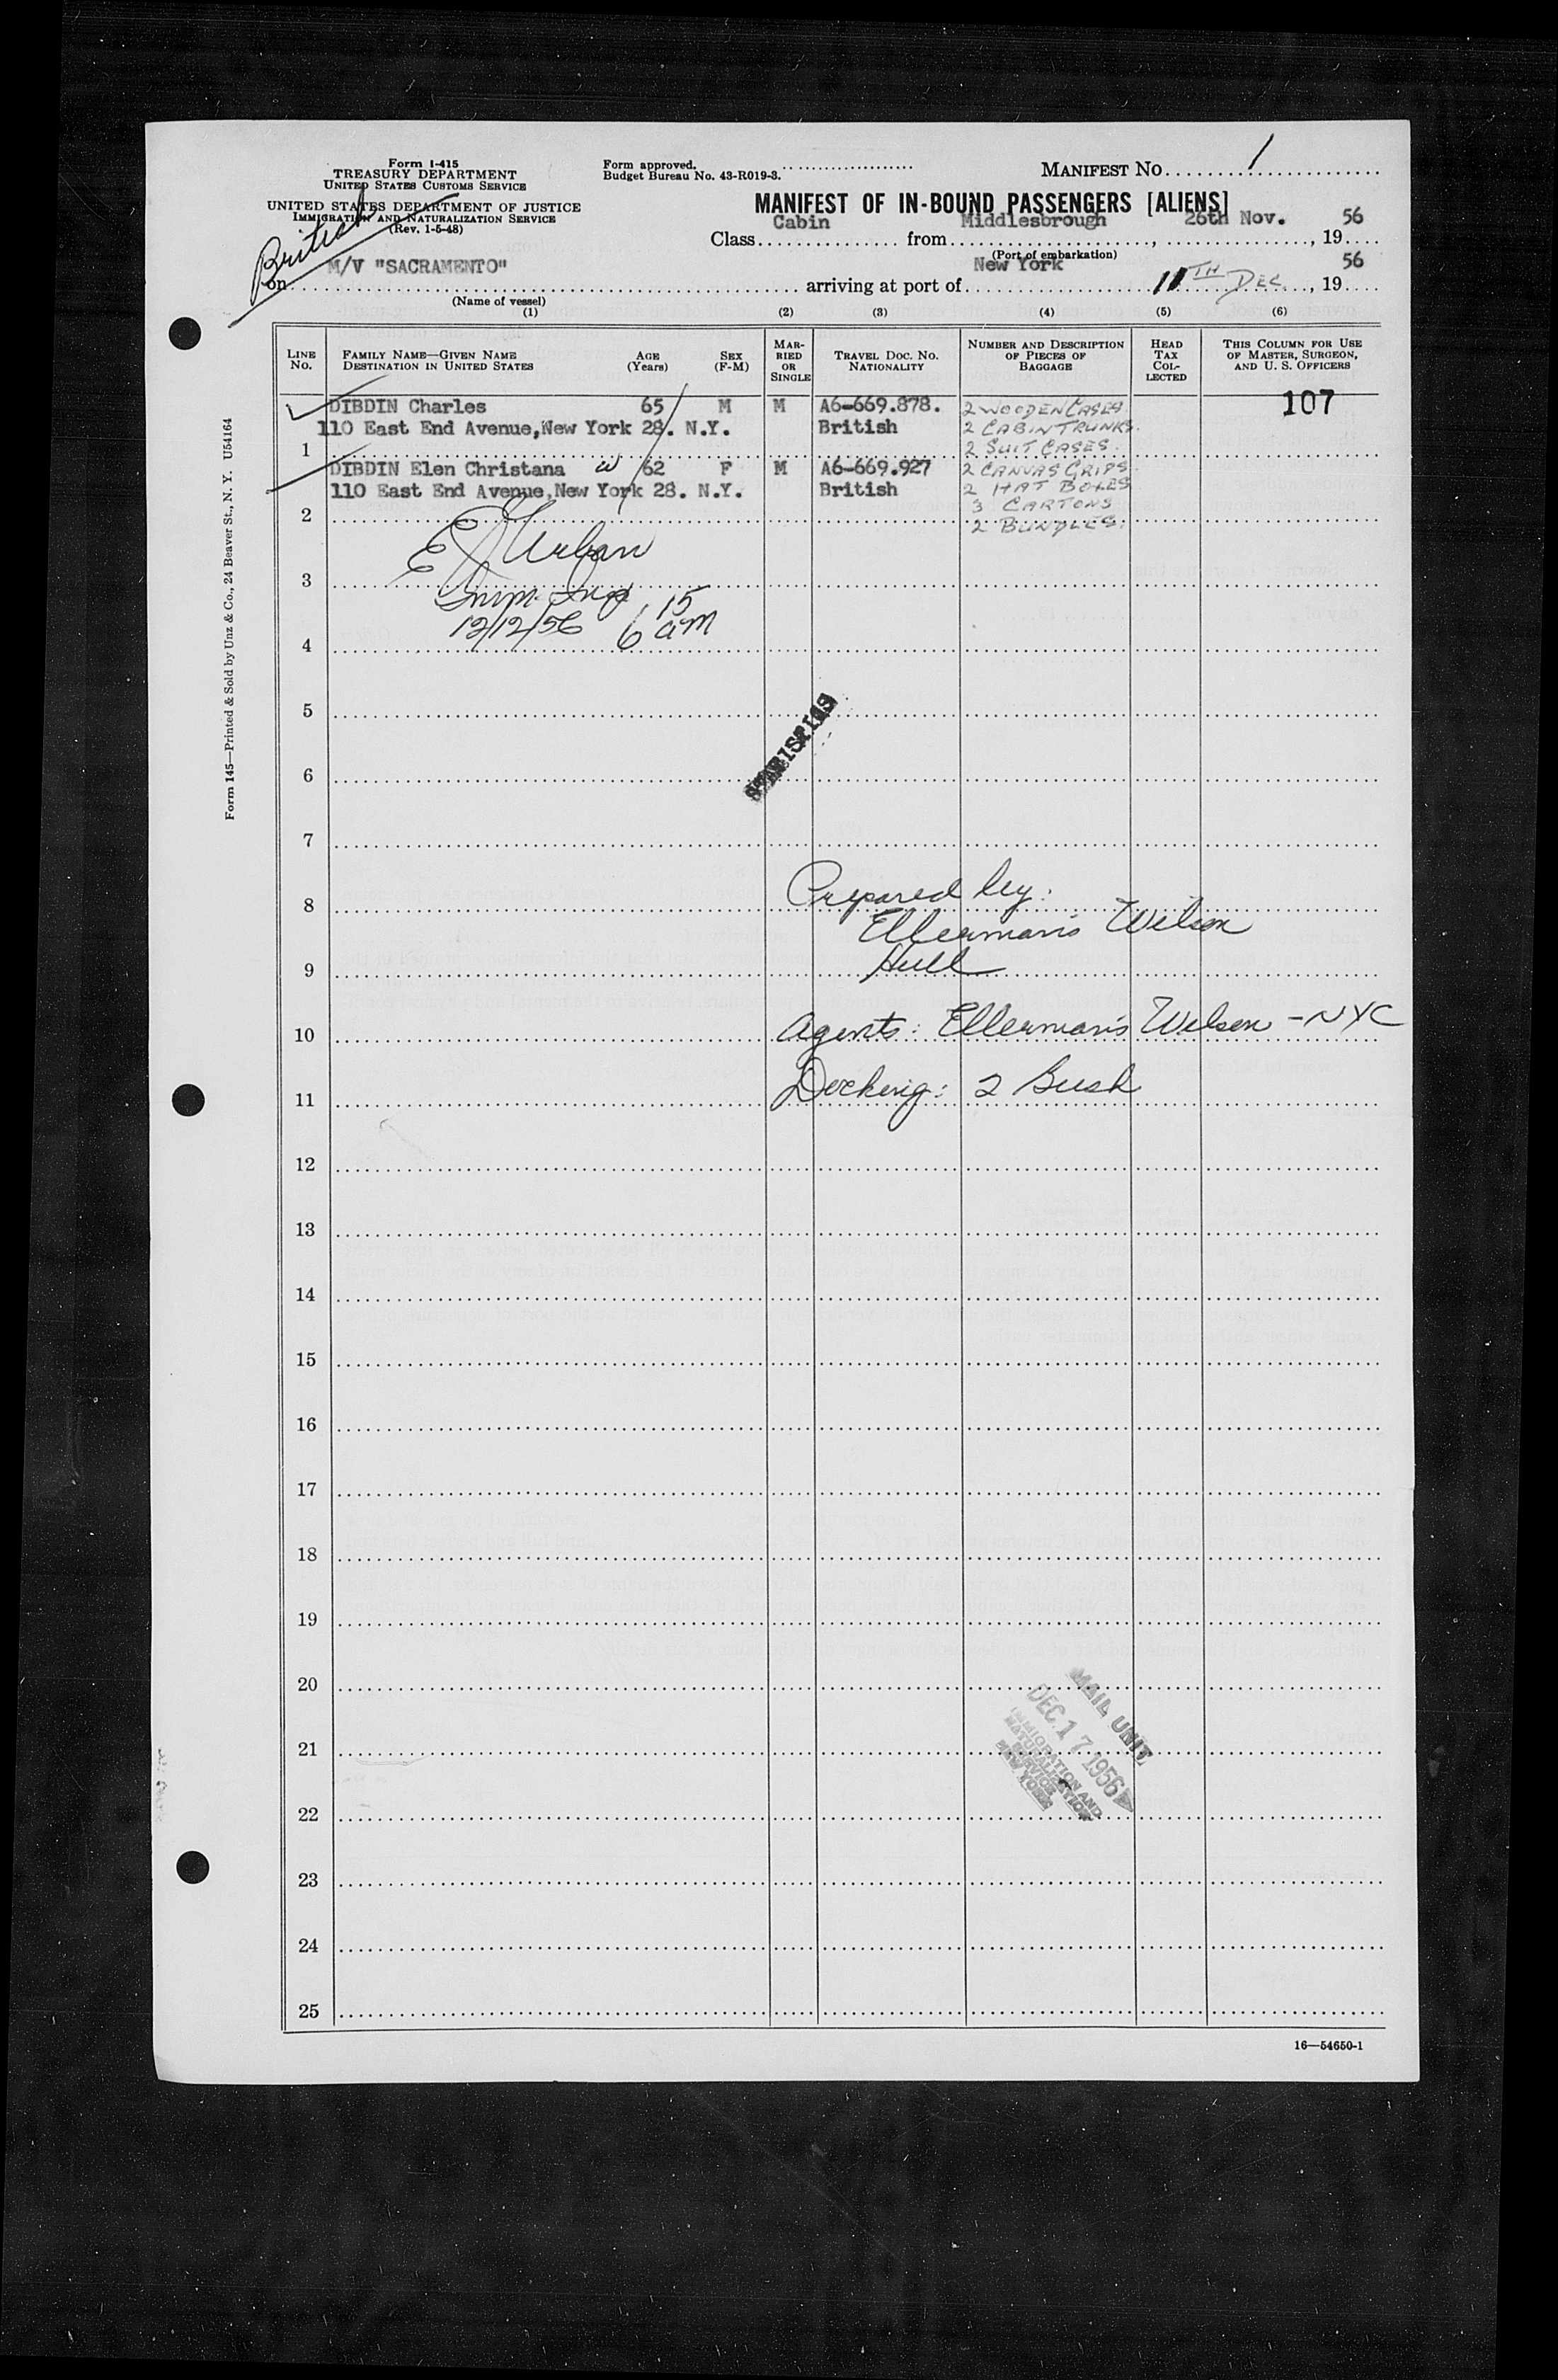 Form I-415
TREASURY DEPARTMENT
UNITED STATES CUSTOMS SERVICE
UNITED STATES DEPARTMENT OF JUSTICE
IMMIGRATION AND NATURALIZATION SERVICE
(Rev. 1-5-48)
British
Form approved.
Budget Bureau No. 43-R019-3.
MANIFEST NO. 1
MANIFEST OF IN-BOUND PASSENGERS [ALIENS]
Class Cabin from Middlesbrough, 26th Nov., 19 56
(Port of embarkation)
on M/V "SACRAMENTO" arriving at port of New York 11TH DEC., 19 56
(Name of vessel)
(1) (2) (3) (4) (5) (6)
LINE No.
FAMILY NAME—GIVEN NAME
DESTINATION IN UNITED STATES
AGE (Years)
SEX (F-M)
MARRIED OR SINGLE
TRAVEL DOC. NO.
NATIONALITY
NUMBER AND DESCRIPTION OF PIECES OF BAGGAGE
HEAD TAX COLLECTED
THIS COLUMN FOR USE OF MASTER, SURGEON, AND U. S. OFFICERS
DIBDIN Charles 65 M M A6-669.878. 2 WOODEN CASES 107
110 East End Avenue,New York 28. N.Y. British 2 CABIN TRUNKS.
1 2 SUIT CASES.
DIBDIN Elen Christana w 62 F M A6-669.927 2 CANVAS GRIPS
110 East End Avenue,New York 28. N.Y. British 2 HAT BOXES
3 CARTONS
2 2 BUNDLES.
E J Urban
3
Imm. Insp
12/12/56 6 15 am
4
5
STATISTICS
6
7
Prepared by:
8
Ellerman's Wilson
Hull
9
10 Agents: Ellerman's Wilson - NYC
Docking: 2 Bush
11
12
13
14
15
16
17
18
19
20
MAIL UNIT
DEC 17 1956
IMMIGRATION AND
NATURALIZATION
SERVICE
NEW YORK
21
22
23
24
25
16—54650-1
Form 145—Printed & Sold by Unz & Co., 24 Beaver St., N. Y. U54164